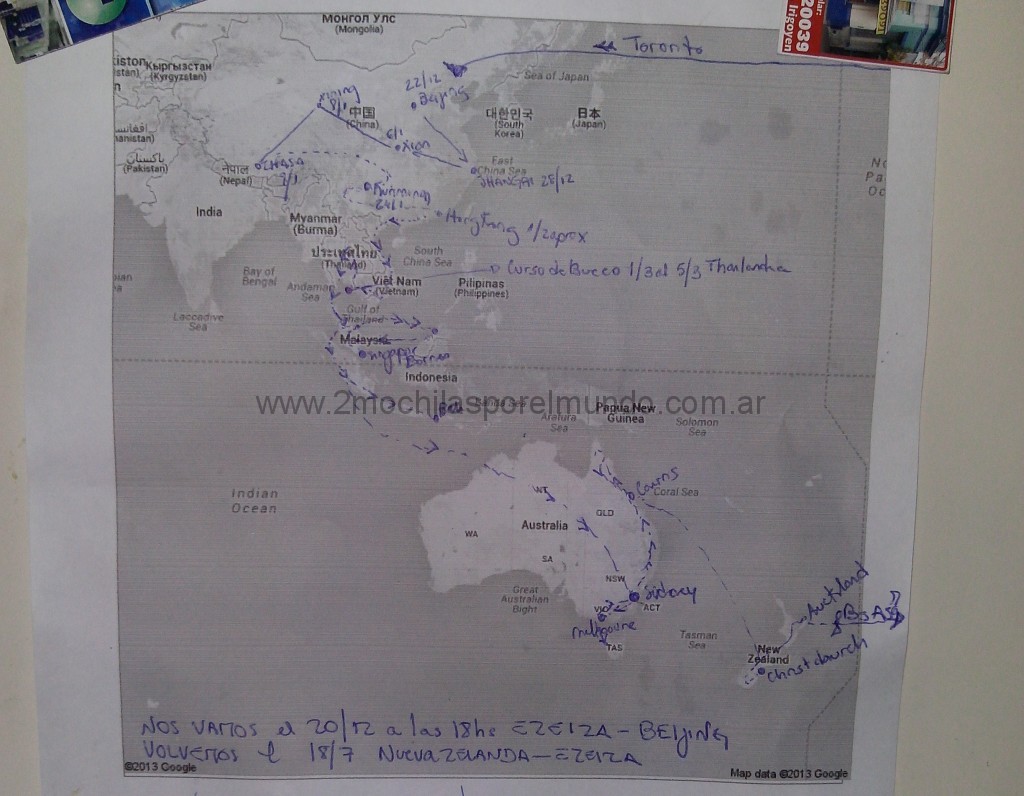 20039
Irigoyen
Монгол Улс
(Mongolia)
Toronto
Кыргызстан
(Kyrgyzstan)
Sea of Japan
22/12
Beijing
xining
8/1
中国
(China)
대한민국
(South
Korea)
日本
(Japan)
6/1
Xian
پاکستان
(Pakistan)
नेपाल
(Nepal)
LHASA
East
China Sea
SHANGAI 25/12
India
Kunming
24/1
Myanmar
(Burma)
Hong Kong 1/2 aprox
ประเทศไทย
(Thailand)
South
China Sea
Curso de Buceo 1/3 al 5/3 Thailandia
Bay of
Bengal
Andaman
Sea
Việt Nam
(Vietnam)
Pilipinas
(Philippines)
Gulf of
Thailand
Laccadive
Sea
Malaysia
Singapur
Borneo
Indonesia
www.2mochilasporelmundo.com.ar
Bali
Banda Sea
Papua New
Guinea
Arafura
Sea
Solomon
Sea
Indian
Ocean
Cairns
Coral Sea
NT
QLD
WA
Australia
SA
NSW
Great
Australian
Bight
Sidney
VIC
ACT
Melbourne
TAS
Tasman
Sea
Auckland
BsAs
New
Zealand
Christchurch
NOS VAMOS el 20/12 a las 18hs EZEIZA - BEIJING
VOLVEMOS el 18/7 NUEVA ZELANDA - EZEIZA
©2013 Google
Map data ©2013 Google